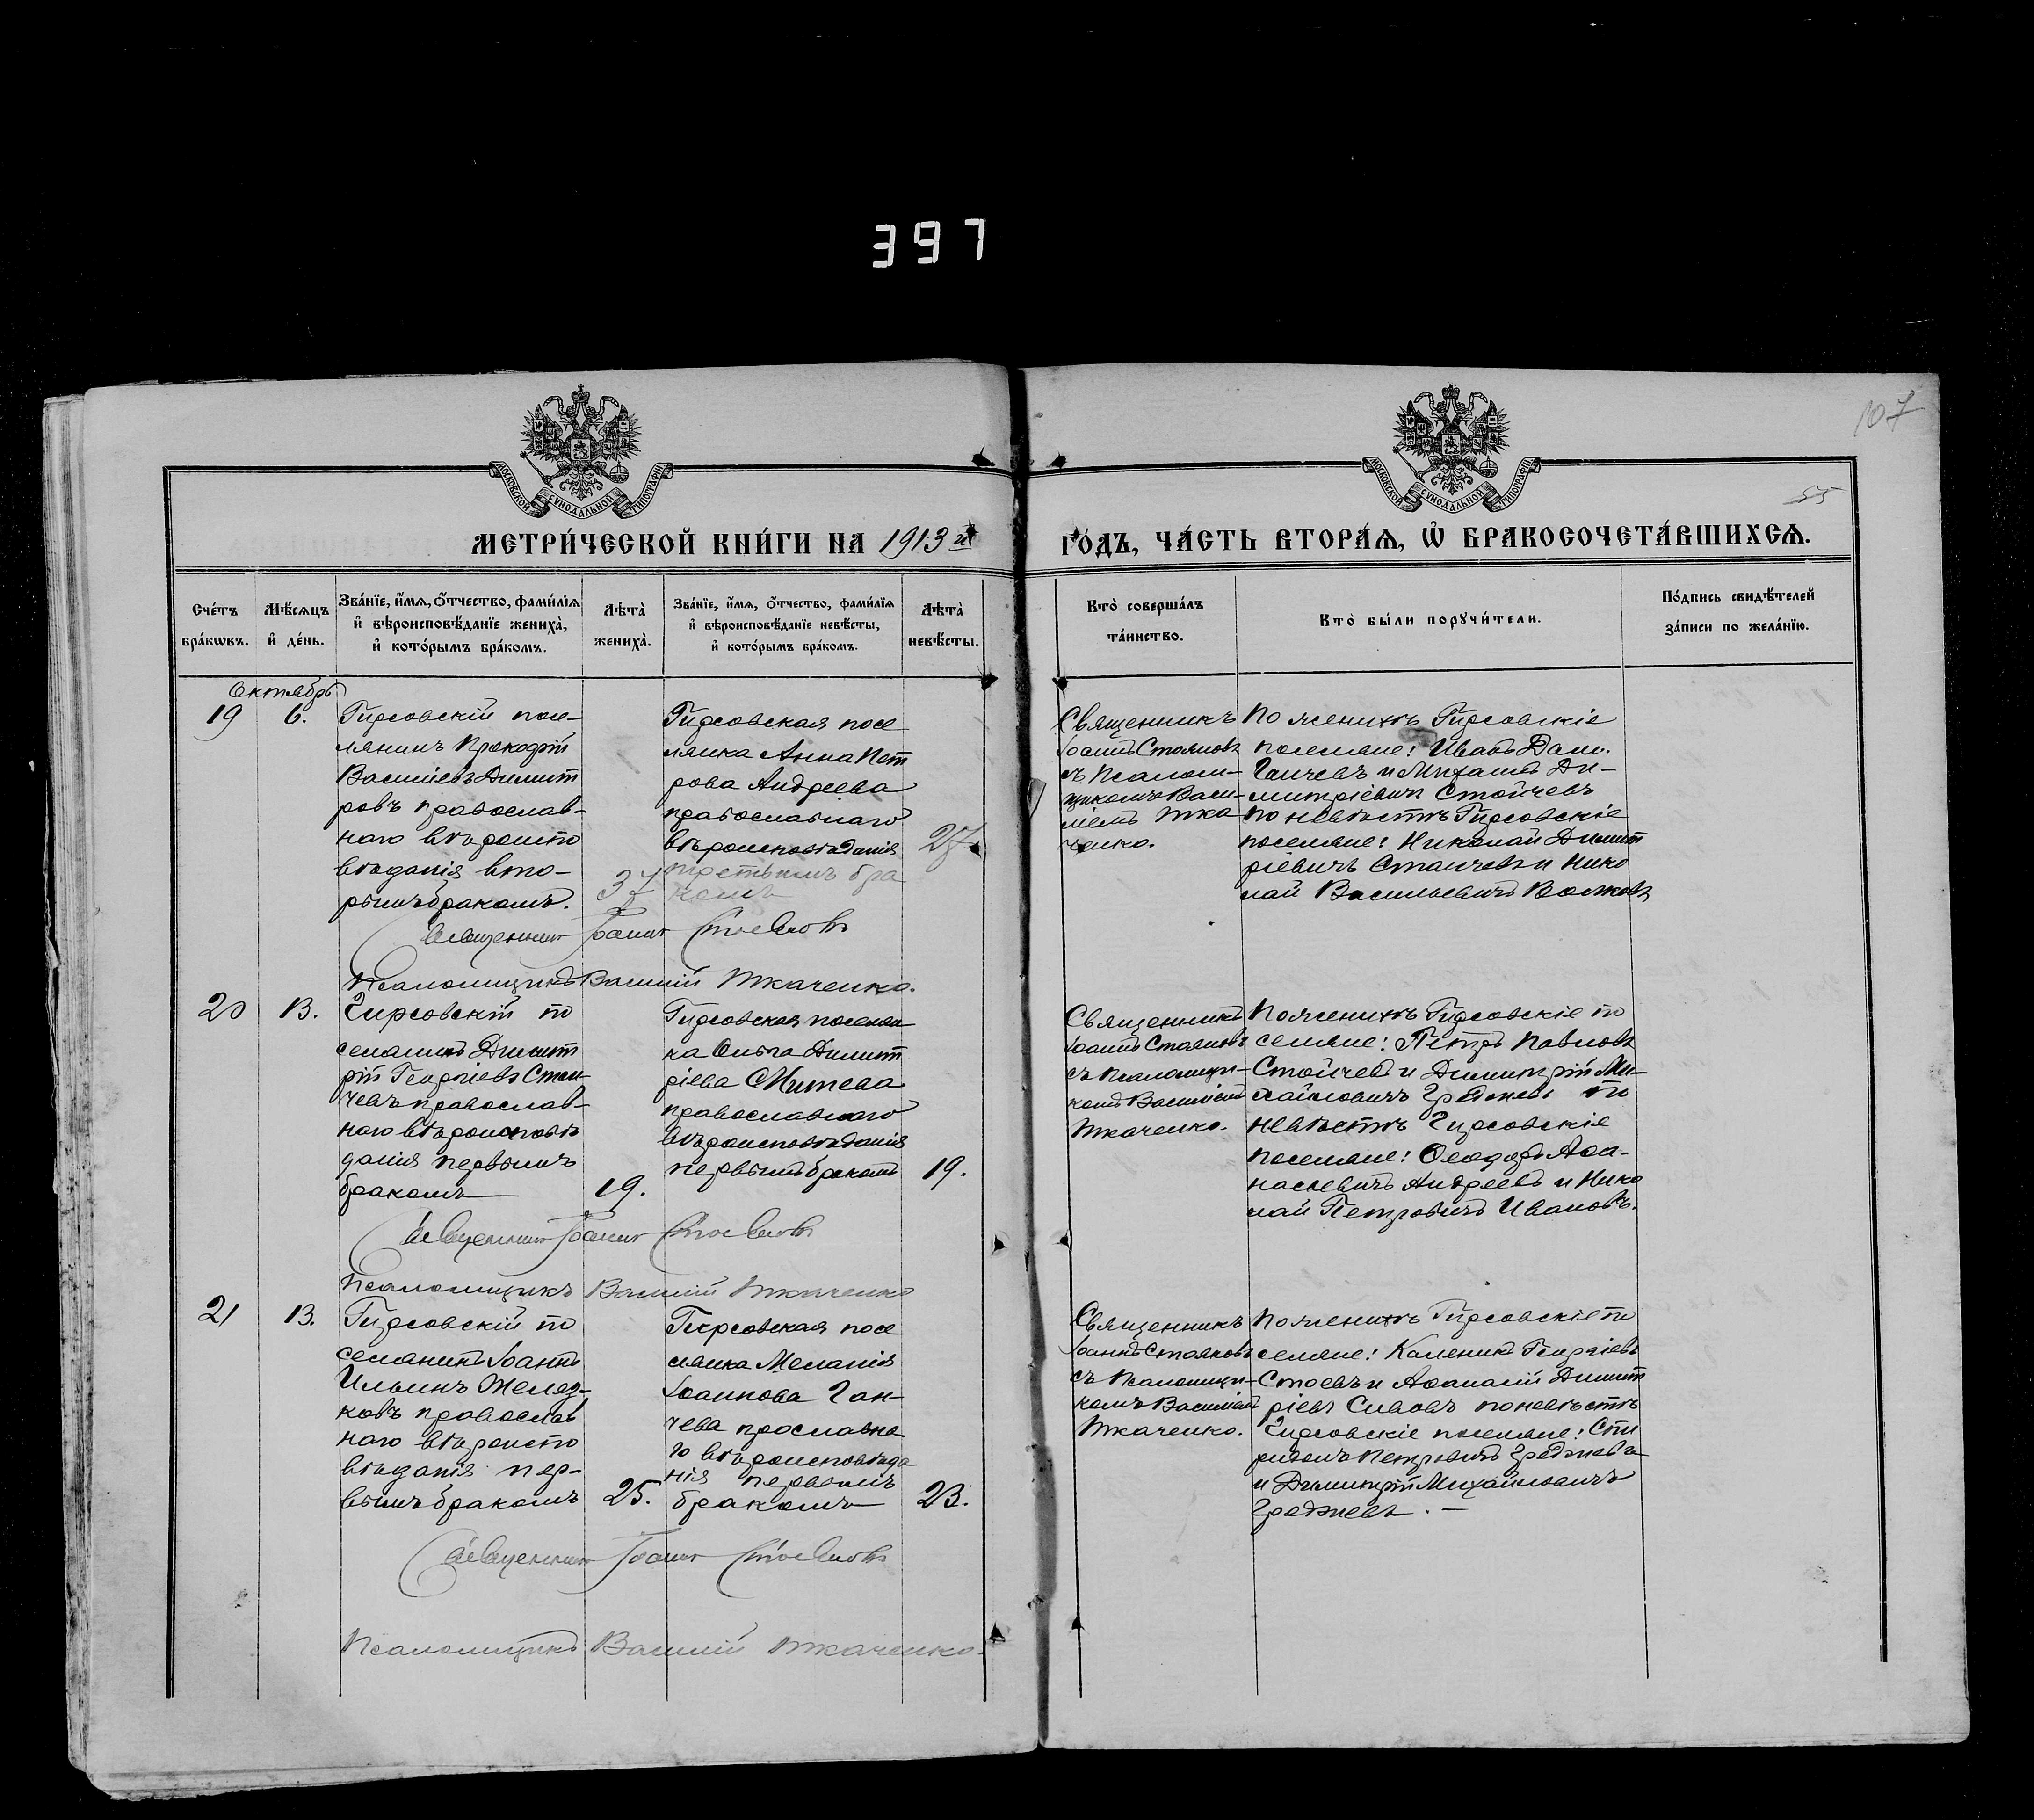 397
107
55
МОСКОВСКОЙ СѴНОДАЛЬНОЙ ТИПОГРАФІИ
МОСКОВСКОЙ СѴНОДАЛЬНОЙ ТИПОГРАФІИ
МЕТРИ́ЧЕСКОЙ КНИ́ГИ НА 1913 й
ГО́ДЪ, ЧА́СТЬ ВТОРА́Ѧ, Ѡ҆ БРАКОСОЧЕТА́ВШИХСѦ.
Сче́тъ бра́кѡвъ.
Мѣ́сяцъ и҆ де́нь.
Зва́нїе, и҆́мѧ, ѻ҆́тчество, фами́лїѧ
и҆ вѣроисповѣ́данїе жениха̀,
и҆ кото́рымъ бра́комъ.
Лѣта̀ жениха̀.
Зва́нїе, и҆́мѧ, ѻ҆́тчество, фами́лїѧ
и҆ вѣроисповѣ́данїе невѣ́сты,
и҆ кото́рымъ бра́комъ.
Лѣта̀ невѣ́сты.
Кто̀ соверша́лъ
та́инство.
Кто̀ бы́ли порꙋчи́тели.
По́дпись свидѣ́телей
за́писи по жела́нїю.
Октябрь
19
6.
Гирсовскій посе-
лянинъ Прокофій
Василіевъ Димит
ровъ православ-
наго вѣроиспо
вѣданія вто-
рымъ бракомъ.
37
Гирсовская посе
лянка Анна Пет
рова Андреева
православнаго
вѣроисповѣданія
третьимъ бра
комъ
27.
Священникъ
Іоаннъ Стояновъ
съ Псалом-
щикомъ Васи-
ліемъ Тка
ченко.
По женихѣ Гирсовскіе
поселяне: Иванъ
Ганчевъ и Михаилъ Ди-
митріевичъ Стойчевъ
по невѣстѣ Гирсовскіе
поселяне: Николай Димит
ріевичъ Станчевъ и Нико
лай Васильевичъ Волковъ
Священникъ Іоаннъ Стояновъ
Псаломщикъ Василій Ткаченко.
20
13.
Гирсовскій по
селянинъ Димит
рій Георгіевъ Стан-
чевъ православ-
наго вѣроисповѣ
данія первымъ
бракомъ
19.
Гирсовская поселян
ка Ольга Димит
ріева Митева
православнаго
вѣроисповѣданія
первымъ бракомъ
19.
Священникъ
Іоаннъ Стояновъ
съ псаломщи-
комъ Василіемъ
Ткаченко.
По женихѣ Гирсовскіе по
селяне: Петръ Павловъ
Стойчевъ и Димитрій Ми-
хайловичъ Греджевъ по
невѣстѣ Гирсовскіе
поселяне: Ѳеодоръ Аѳа-
насіевичъ Андреевъ и Нико
лай Петровичъ Ивановъ.
Священникъ Іоаннъ Стояновъ
Псаломщикъ Василій Ткаченко
21
13.
Гирсовскій по
селянинъ Іоаннъ
Ильинъ Желез-
ковъ православ
наго вѣроиспо
вѣданія пер-
вымъ бракомъ
25.
Гирсовская посе
лянка Меланія
Іоаннова Ган-
чева прославна
го вѣроисповѣда
нія первымъ
бракомъ
23.
Священникъ
Іоаннъ Стояновъ
съ Псаломщи-
комъ Василіемъ
Ткаченко.
По женихѣ Гирсовскіе по
селяне: Каленикъ Георгіевъ
Стоевъ и Аѳанасій Димит
ріевъ Сивовъ по невѣстѣ
Гирсовскіе поселяне: Спи
ридонъ Петровичъ Греджевъ
и Димитрій Михайловичъ
Греджевъ. —
Священникъ Іоаннъ Стояновъ
Псаломщикъ Василій Ткаченко.